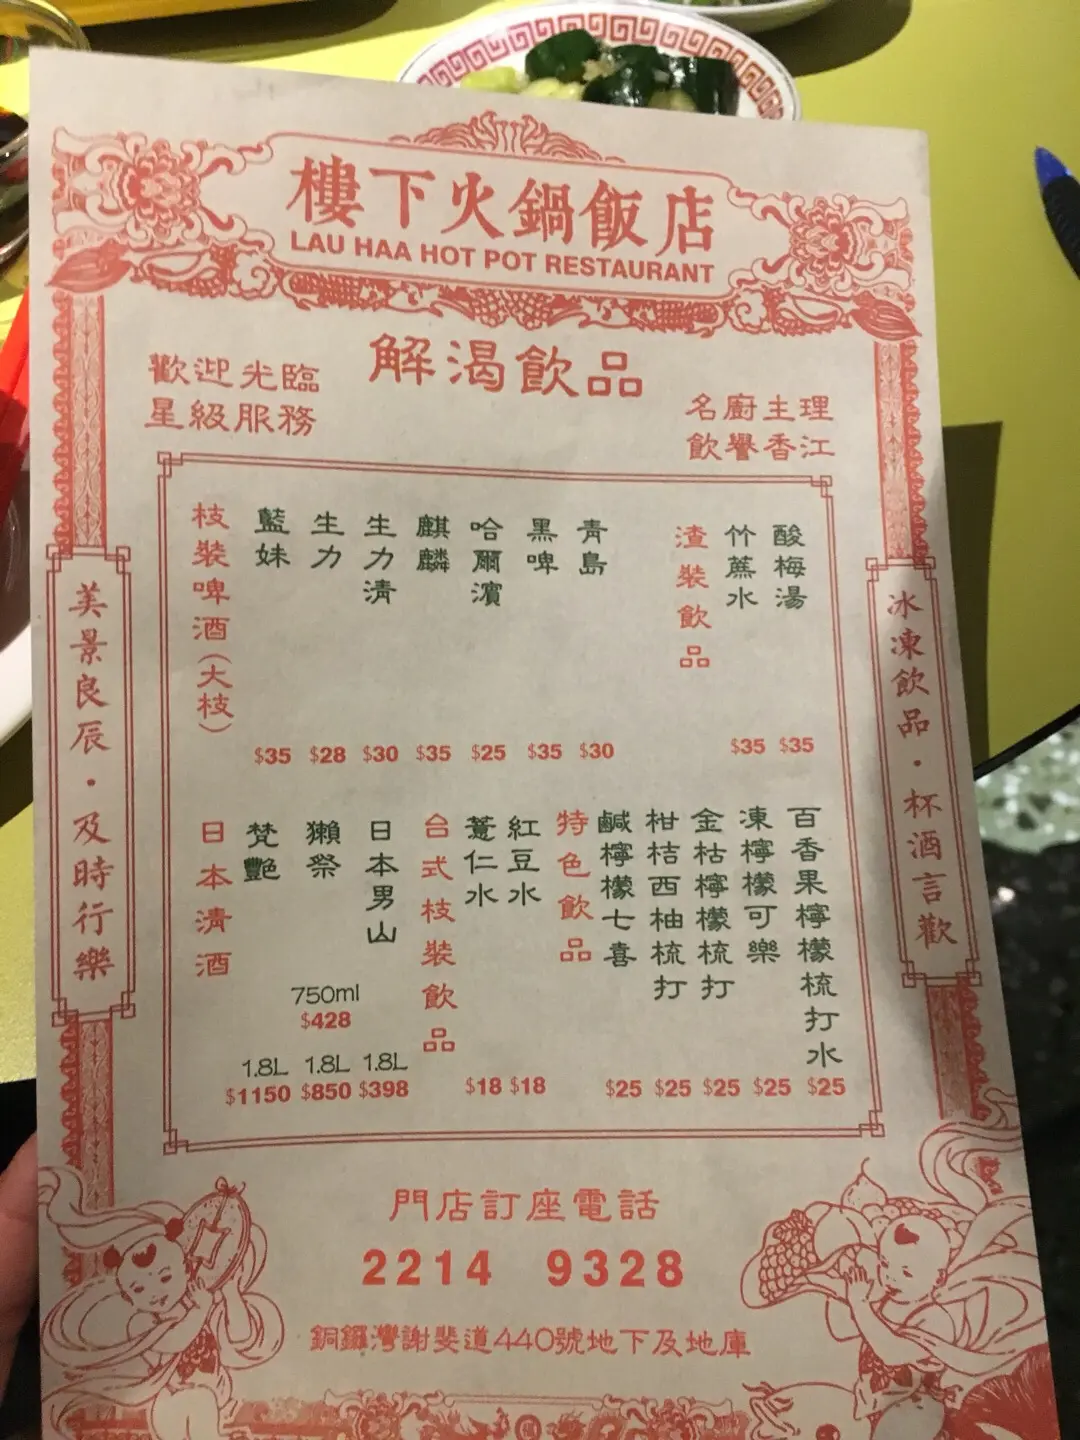 樓下火鍋飯店
LAU HAA HOT POT RESTAURANT
解渴飲品
歡迎光臨
星級服務
名廚主理
飲譽香江
冰凍飲品·杯酒言歡
美景良辰·及時行樂
酸梅湯
$35
竹蔗水
$35
渣裝飲品
青島
$30
黑啤
$35
哈爾濱
$25
麒麟
$35
生力清
$30
生力
$28
藍妹
$35
枝裝啤酒(大枝)
百香果檸檬梳打水
$25
凍檸檬可樂
$25
金枯檸檬梳打
$25
柑桔西柚梳打
$25
鹹檸檬七喜
$25
特色飲品
紅豆水
$18
薏仁水
$18
台式枝裝飲品
日本男山
1.8L
$398
獺祭
750ml
$428
1.8L
$850
梵艷
1.8L
$1150
日本清酒
門店訂座電話
2214 9328
銅鑼灣謝斐道440號地下及地庫